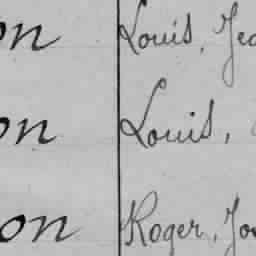 on Louis, Jea
on Louis,
on Roger, Jos